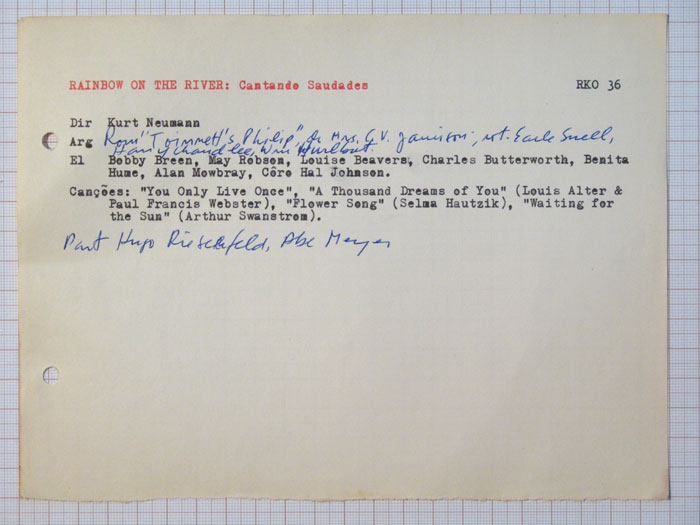 RAINBOW ON THE RIVER: Cantando Saudades RKO 36
Dir Kurt Neumann
Arg Rom "Toinnett's Philip" de Mrs. C. V. Jamison; rot. Earle Snell,
Harry Chandlee, Wm Hurlbut.
El Bobby Breen, May Robson, Louise Beavers, Charles Butterworth, Benita
Hume, Alan Mowbray, Côro Hal Johnson.
Canções: "You Only Live Once", "A Thousand Dreams of You" (Louis Alter &
Paul Francis Webster), "Flower Song" (Selma Hautzik), "Waiting for
the Sun" (Arthur Swanstrom).
Part Hugo Riesenfeld, Abe Meyer